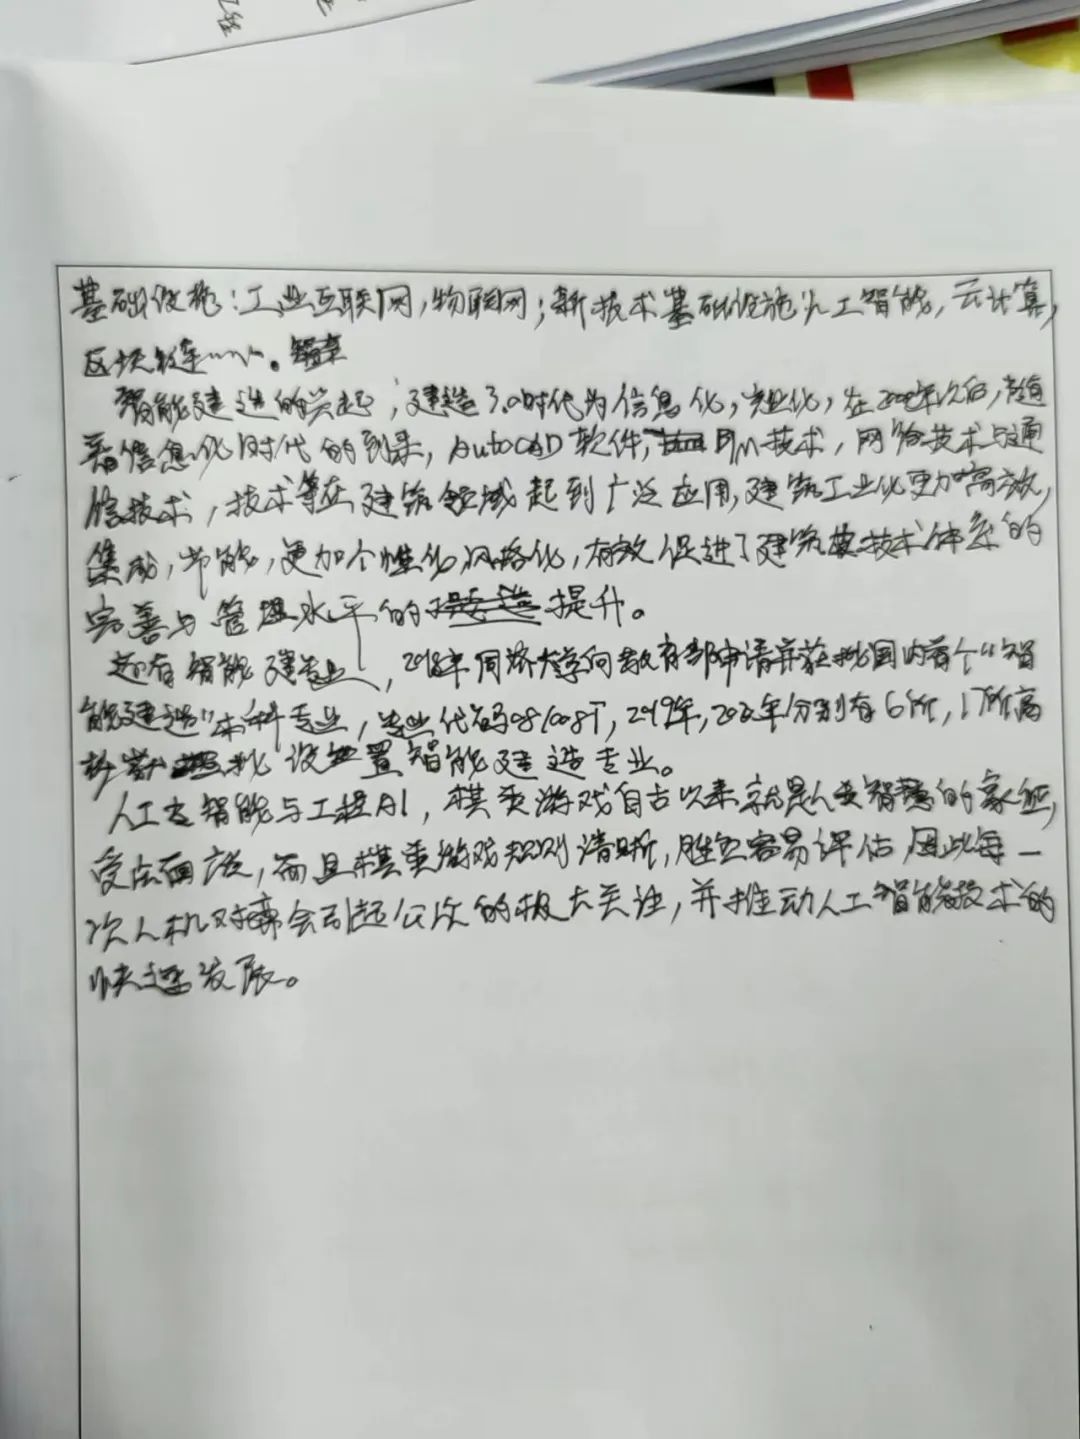 基础设施：工业互联网，物联网；新技术基础设施人工智能，云计算，
区块链……。
智能建造的兴起，建造3.0时代为信息化，业化，在2000年以后，随
着信息化时代的到来，AutoCAD软件，BIM技术，网络技术与通
信技术，技术等在建筑领域起到广泛应用，建筑工业化更加高效，
集成，节能，更加个性化风格化，有效促进了建筑业技术体系的
完善与管理水平的提升。
还有智能建造业，2018年同济大学向教育部申请并获批国内首个“智
能建造”本科专业，专业代码081008T，2019年，2020年分别有6所，17所高
校获批设置智能建造专业。
人工智能与工程AI，棋类游戏自古以来就是人类智慧的象征，
受众面广，而且棋类游戏规则清晰，胜负容易评估，因此每一
次人机对弈会引起公众的极大关注，并推动人工智能技术的
快速发展。